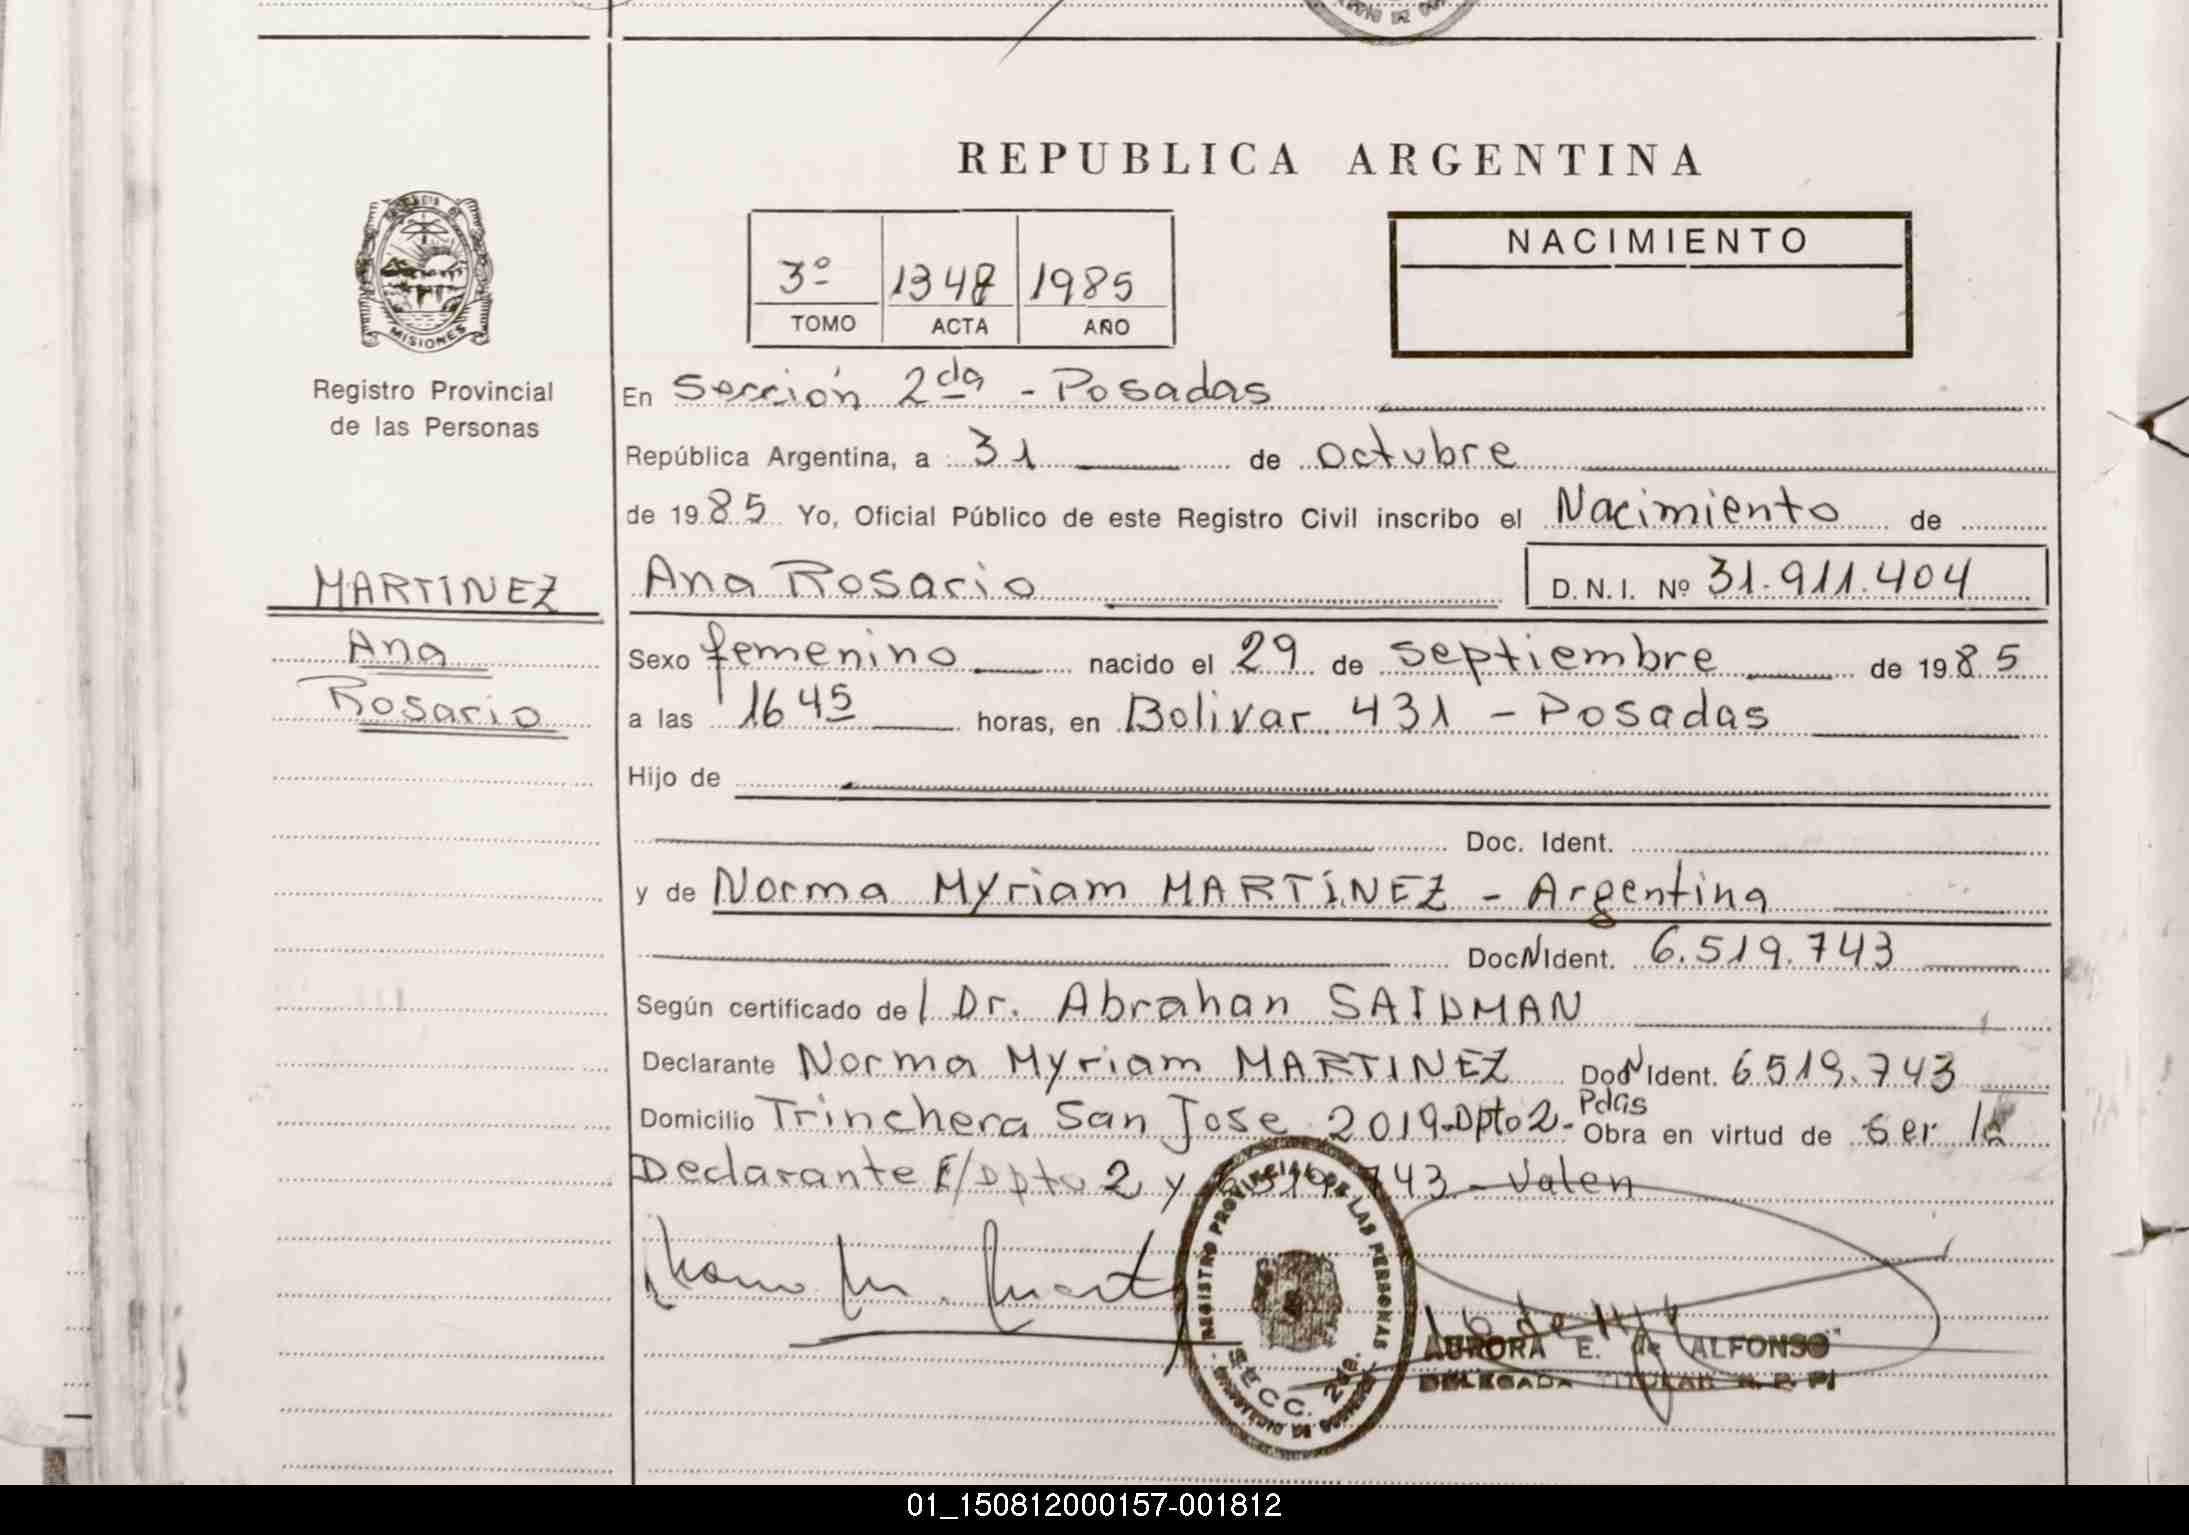 REPUBLICA ARGENTINA
MISIONES
Registro Provincial
de las Personas
3º 1348 1985
TOMO ACTA AÑO
NACIMIENTO
En Sección 2da - Posadas
República Argentina, a 31 de octubre
de 1985 Yo, Oficial Público de este Registro Civil inscribo el Nacimiento de
MARTINEZ
Ana
Rosario
Ana Rosario D.N.I. Nº 31.911.404
Sexo femenino nacido el 29 de septiembre de 1985
a las 16 45 horas, en Bolivar 431 - Posadas
Hijo de
Doc. Ident.
y de Norma Myriam MARTÍNEZ - Argentina
Doc N Ident. 6.519.743
Según certificado del Dr. Abrahan SAIDMAN
Declarante Norma Myriam MARTINEZ Doc N Ident. 6519.743
Domicilio Trinchera San Jose 2019-Dpto 2- Pdas
Obra en virtud de ser la
Declarante E/Dpto 2 y 6519.743 - Valen
REGISTRO PROVINCIAL DE LAS PERSONAS
SECC. 2da.
AURORA E. de ALFONSO
DELEGADA TITULAR R. P. P.
01_150812000157-001812